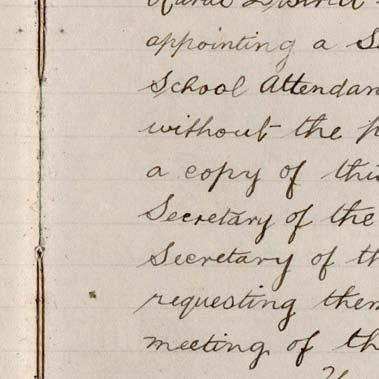 Rural District
appointing a S
School Attendan
without the p
a copy of this
Secretary of the
Secretary of th
requesting them
meeting of th